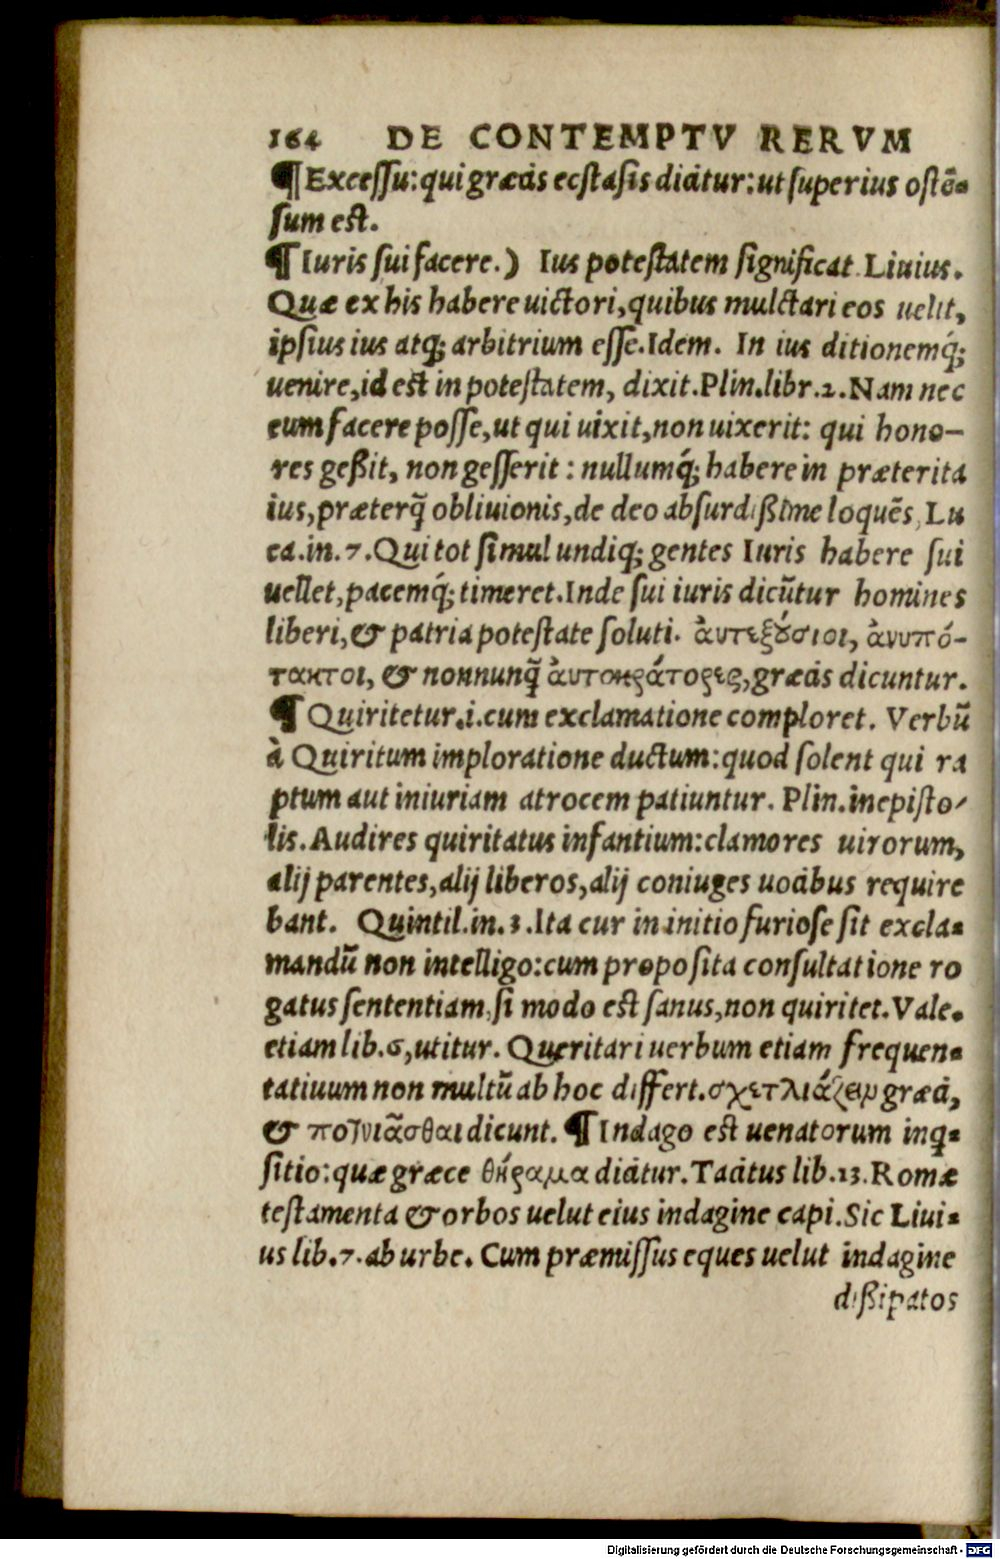 164 DE CONTEMPTV RERVM
¶ Excessu: qui græcis ecstasis dicitur: ut superius ostẽ-
sum est.
¶ Iuris sui facere.) Ius potestatem significat Liuius.
Quæ ex his habere uictori, quibus mulctari eos uelit,
ipsius ius atq; arbitrium esse. Idem. In ius ditionemq́;
uenire, id est in potestatem, dixit. Plin. libr. 2. Nam nec
eum facere posse, ut qui uixit, non uixerit: qui hono-
res geßit, non gesserit: nullumq́; habere in præterita
ius, præterq̃ obliuionis, de deo absurdißime loquẽs, Lu
ca. in. 7. Qui tot simul undiq; gentes Iuris habere sui
uellet, pacemq́; timeret. Inde sui iuris dicũtur homines
liberi, & patria potestate soluti. ἀυτεξȣ́σιοι, ἀνυπό-
τακτοι, & nonnunq̃ ἀυτοκράτορες, græcis dicuntur.
¶ Quiritetur. i. cum exclamatione comploret. Verbũ
à Quiritum imploratione ductum: quod solent qui ra
ptum aut iniuriam atrocem patiuntur. Plin. in episto-
lis. Audires quiritatus infantium: clamores uirorum,
alij parentes, alij liberos, alij coniuges uocibus require
bant. Quintil. in. 3. Ita cur in initio furiose sit excla-
mandũ non intelligo: cum proposita consultatione ro
gatus sententiam, si modo est sanus, non quiritet. Vale.
etiam lib. 6, utitur. Queritari uerbum etiam frequen-
tatiuum non multũ ab hoc differt. σχετλιάζειν græci,
& ποτνιᾶσθαι dicunt. ¶ Indago est uenatorum inq̨-
sitio: quæ græce θήραμα dicitur. Tacitus lib. 13. Romæ
testamenta & orbos uelut eius indagine capi. Sic Liui-
us lib. 7. ab urbe. Cum præmissus eques uelut indagine
dißipatos
Digitalisierung gefördert durch die Deutsche Forschungsgemeinschaft - DFG